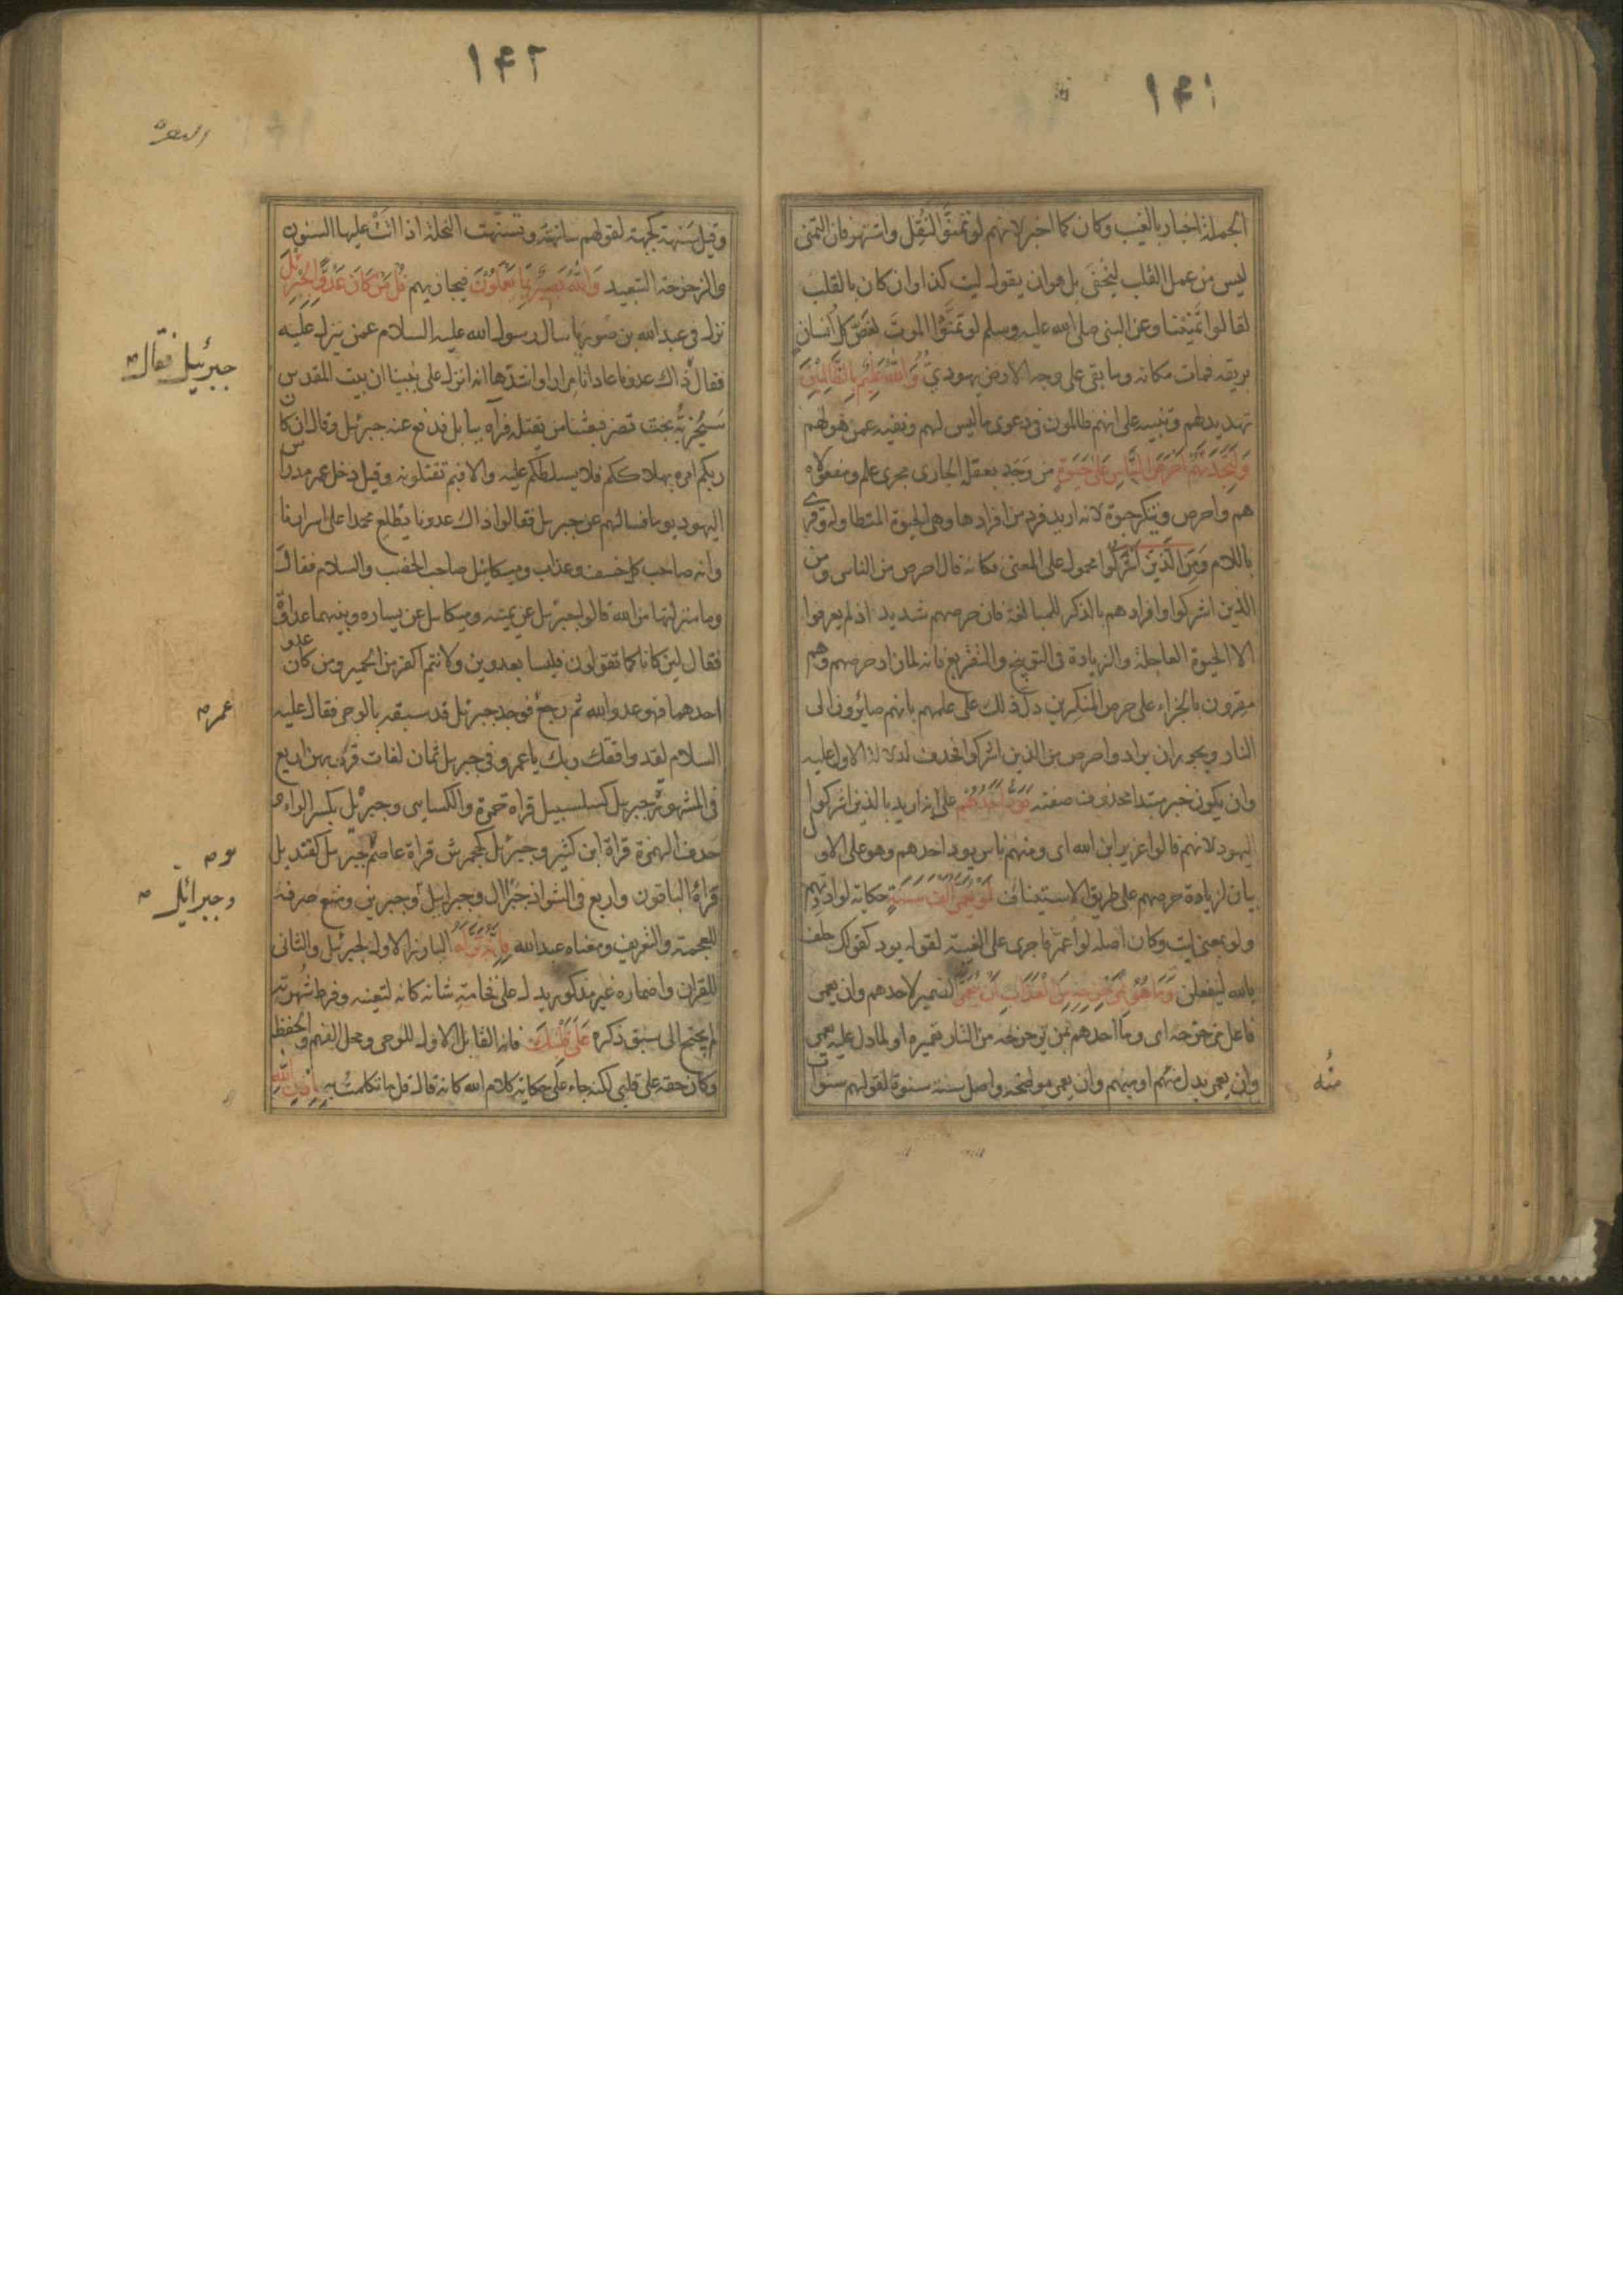 ١٤١
الجملة اخبار بالغيب وكان كما اخبر لانهم لو تمنوا لنقل واشتهر فان التمنى
ليس من عمل القلب ليخفى بل هو ان يقول ليت كذا وان كان بالقلب
لقالوا تمنينا وعن النبى صلى الله عليه وسلم لو تمنوا الموت لغص كل انسان
بريقه فمات مكانه وما بقى على وجه الارض يهودى وَاللّٰهُ عَلِيمٌ بِالظَّالِمِينَ
تهديد لهم وتنبيه على انهم ظالمون فى دعوى ما ليس لهم ونفيه عمن هو لهم
وَلَتَجِدَنَّهُمْ اَحْرَصَ النَّاسِ عَلَى حَيٰوةٍ من وجد بعقله الجارى مجرى علم ومفعولاه
هم واحرص وتنكير حيوة لانه اريد فرد من افرادها وهى الحيوة المتطاولة وقرئ
باللام وَمِنَ الَّذِينَ اَشْرَكُوا محمول على المعنى فكانه قال احرص من الناس ومن
الذين اشركوا وافرادهم بالذكر للمبالغة فان حرصهم شديد اذ لم يعرفوا
الا الحيوة العاجلة والزيادة فى التوبيخ والتقريع فانه لما زاد حرصهم وهم
مقرون بالجزاء على حرص المنكرين دل ذلك على علمهم بانهم صائرون الى
النار ويجوز ان يراد واحرص من الذين اشركوا فحذف لدلالة الاول عليه
وان يكون خبر مبتدا محذوف صفته يَوَدُّ اَحَدُهُمْ على انه اريد بالذين اشركوا
اليهود لانهم قالوا عزير ابن الله اى ومنهم ناس يود احدهم وهو على الاول
بيان لزيادة حرصهم على طريق الاستيناف لَوْ يُعَمَّرُ اَلْفَ سَنَةٍ حكاية لودادتهم
ولو بمعنى ليت وكان اصله لو اعمر فاجرى على الغيبة لقوله يود كقولك حلف
بالله ليفعلن وَمَا هُوَ بِمُزَحْزِحِهِ مِنَ الْعَذَابِ اَنْ يُعَمَّرَ الضمير لاحدهم وان يعمر
فاعل مزحزحه اى وما احدهم بمن يزحزحه من النار تعميره او لما دل عليه يعمر
وان يعمر بدل منهم او مبهم وان يعمر موضحه واصل سنة سنوة لقولهم سنوات
منه
١٤٢
البقرة
وقيل سنهة كجبهة لقولهم سانهته وتسنهت النخلة اذا اتت عليها السنون
والزحزحة التبعيد وَاللّٰهُ بَصِيرٌ بِمَا يَعْمَلُونَ فيجازيهم قُلْ مَنْ كَانَ عَدُوًّا لِجِبْرِئلَ
نزل فى عبد الله بن صوريا سال رسول الله عليه السلام عمن ينزل عليه
فقال ذاك عدونا عادانا مرارا واشدها انه انزل على نبينا ان بيت المقدس
جبرئيل فقال
سيخربه بخت نصر فبعثنا من يقتله فرآه ببابل فدفع عنه جبرئل وقال ان كان
ربكم امره بهلاككم فلا يسلطكم عليه والا فبم تقتلونه وقيل دخل عمر مدراس
اليهود يوما فسالهم عن جبرئل فقالوا ذاك عدونا يطلع محمدا على اسرارنا
وانه صاحب كل خسف وعذاب وميكائيل صاحب الخصب والسلام فقال
وما منزلتهما من الله قالوا جبرئل عن يمينه وميكائل عن يساره وبينهما عداوة
فقال لين كانا كما تقولون فليسا بعدوين ولانتم اكفر من الحمير ومن كان عدو
احدهما فهو عدو الله ثم رجع فوجد جبرئل قد سبقه بالوحى فقال عليه
عمر
السلام لقد وافقك ربك يا عمر وفى جبرئل ثمان لغات قرئ بهن اربع
فى المشهورة جبرئل كسلسبيل قراة حمزة والكسايى وجبرئل بكسر الراء و
حذف الهمزة قراة ابن كثير وجبرئل كجحمرش قراة عاصم وجبريل كقنديل
قراة الباقون واربع فى الشواذ جبرال وجبرائيل وجبرئل وجبرين ومنع صرفه
وجبرائل
للعجمة والتعريف ومعناه عبد الله فَاِنَّهُ نَزَّلَهُ البارز الاول لجبرئل والثانى
للقران واضماره غير مذكور يدل على فخامة شانه كانه لتعينه وفرط شهرته
لم يحتج الى سبق ذكره عَلَى قَلْبِكَ فانه القابل الاول للوحى ومحل الفهم والحفظ
وكان حقه على قلبى لكنه جاء على حكاية كلام الله كانه قال قل ما تكلمت به بِاِذْنِ اللّٰهِ